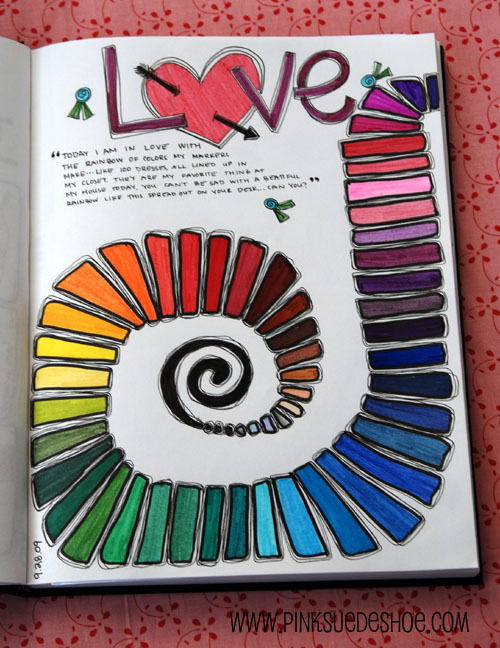 LOVE
"TODAY I AM IN LOVE WITH
THE RAINBOW OF COLORS MY MARKERS
MAKE... LIKE 100 DRESSES, ALL LINED UP IN
MY CLOSET. THEY ARE MY FAVORITE THING AT
MY HOUSE TODAY. YOU CAN'T BE SAD WITH A BEATIFUL
RAINBOW LIKE THIS SPREAD OUT ON YOUR DESK... CAN YOU?"
9.28.09
WWW.PINKSUEDESHOE.COM